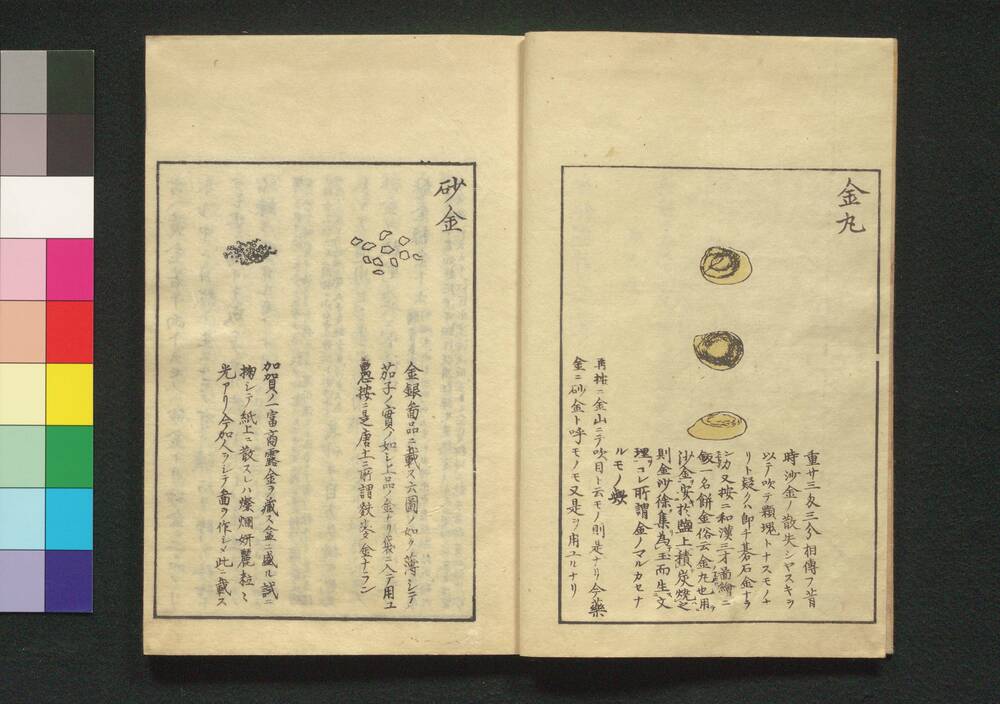 金丸
重サ三匁三分相傳フ昔
時沙金ノ散失シヤスキヲ
以テ吹テ顆塊トナスモノナ
リト疑クハ即チ碁石金ナラ
シカ又按ニ和漢三才圖繪ニ
飯一名餅金俗云金丸也用
沙金安於鹽上積炭燒之
則金沙徐集為玉而生文
理コレ所謂金ノマルカセナ
ルモノ歟
再按ニ金山ニテ吹目ト云モノ則是ナリ今藥
金ニ砂金ト呼モノモ又是ヲ用ユルナリ
砂金
金銀圖品ニ載ス六圖ノ如ク薄シテ
茄子ノ實ノ如シ上品ノ金ナリ袋ニ入テ用ユ
愚按ニ是唐土ニ所謂麩麥金ナラン
加賀ノ一富商露金ヲ藏ス盆ニ盛ル試ニ
掬シテ紙上ニ散スレハ燦爛妍麗粒々
光アリ今加人ヲシテ圖ヲ作シメ此ニ載ス